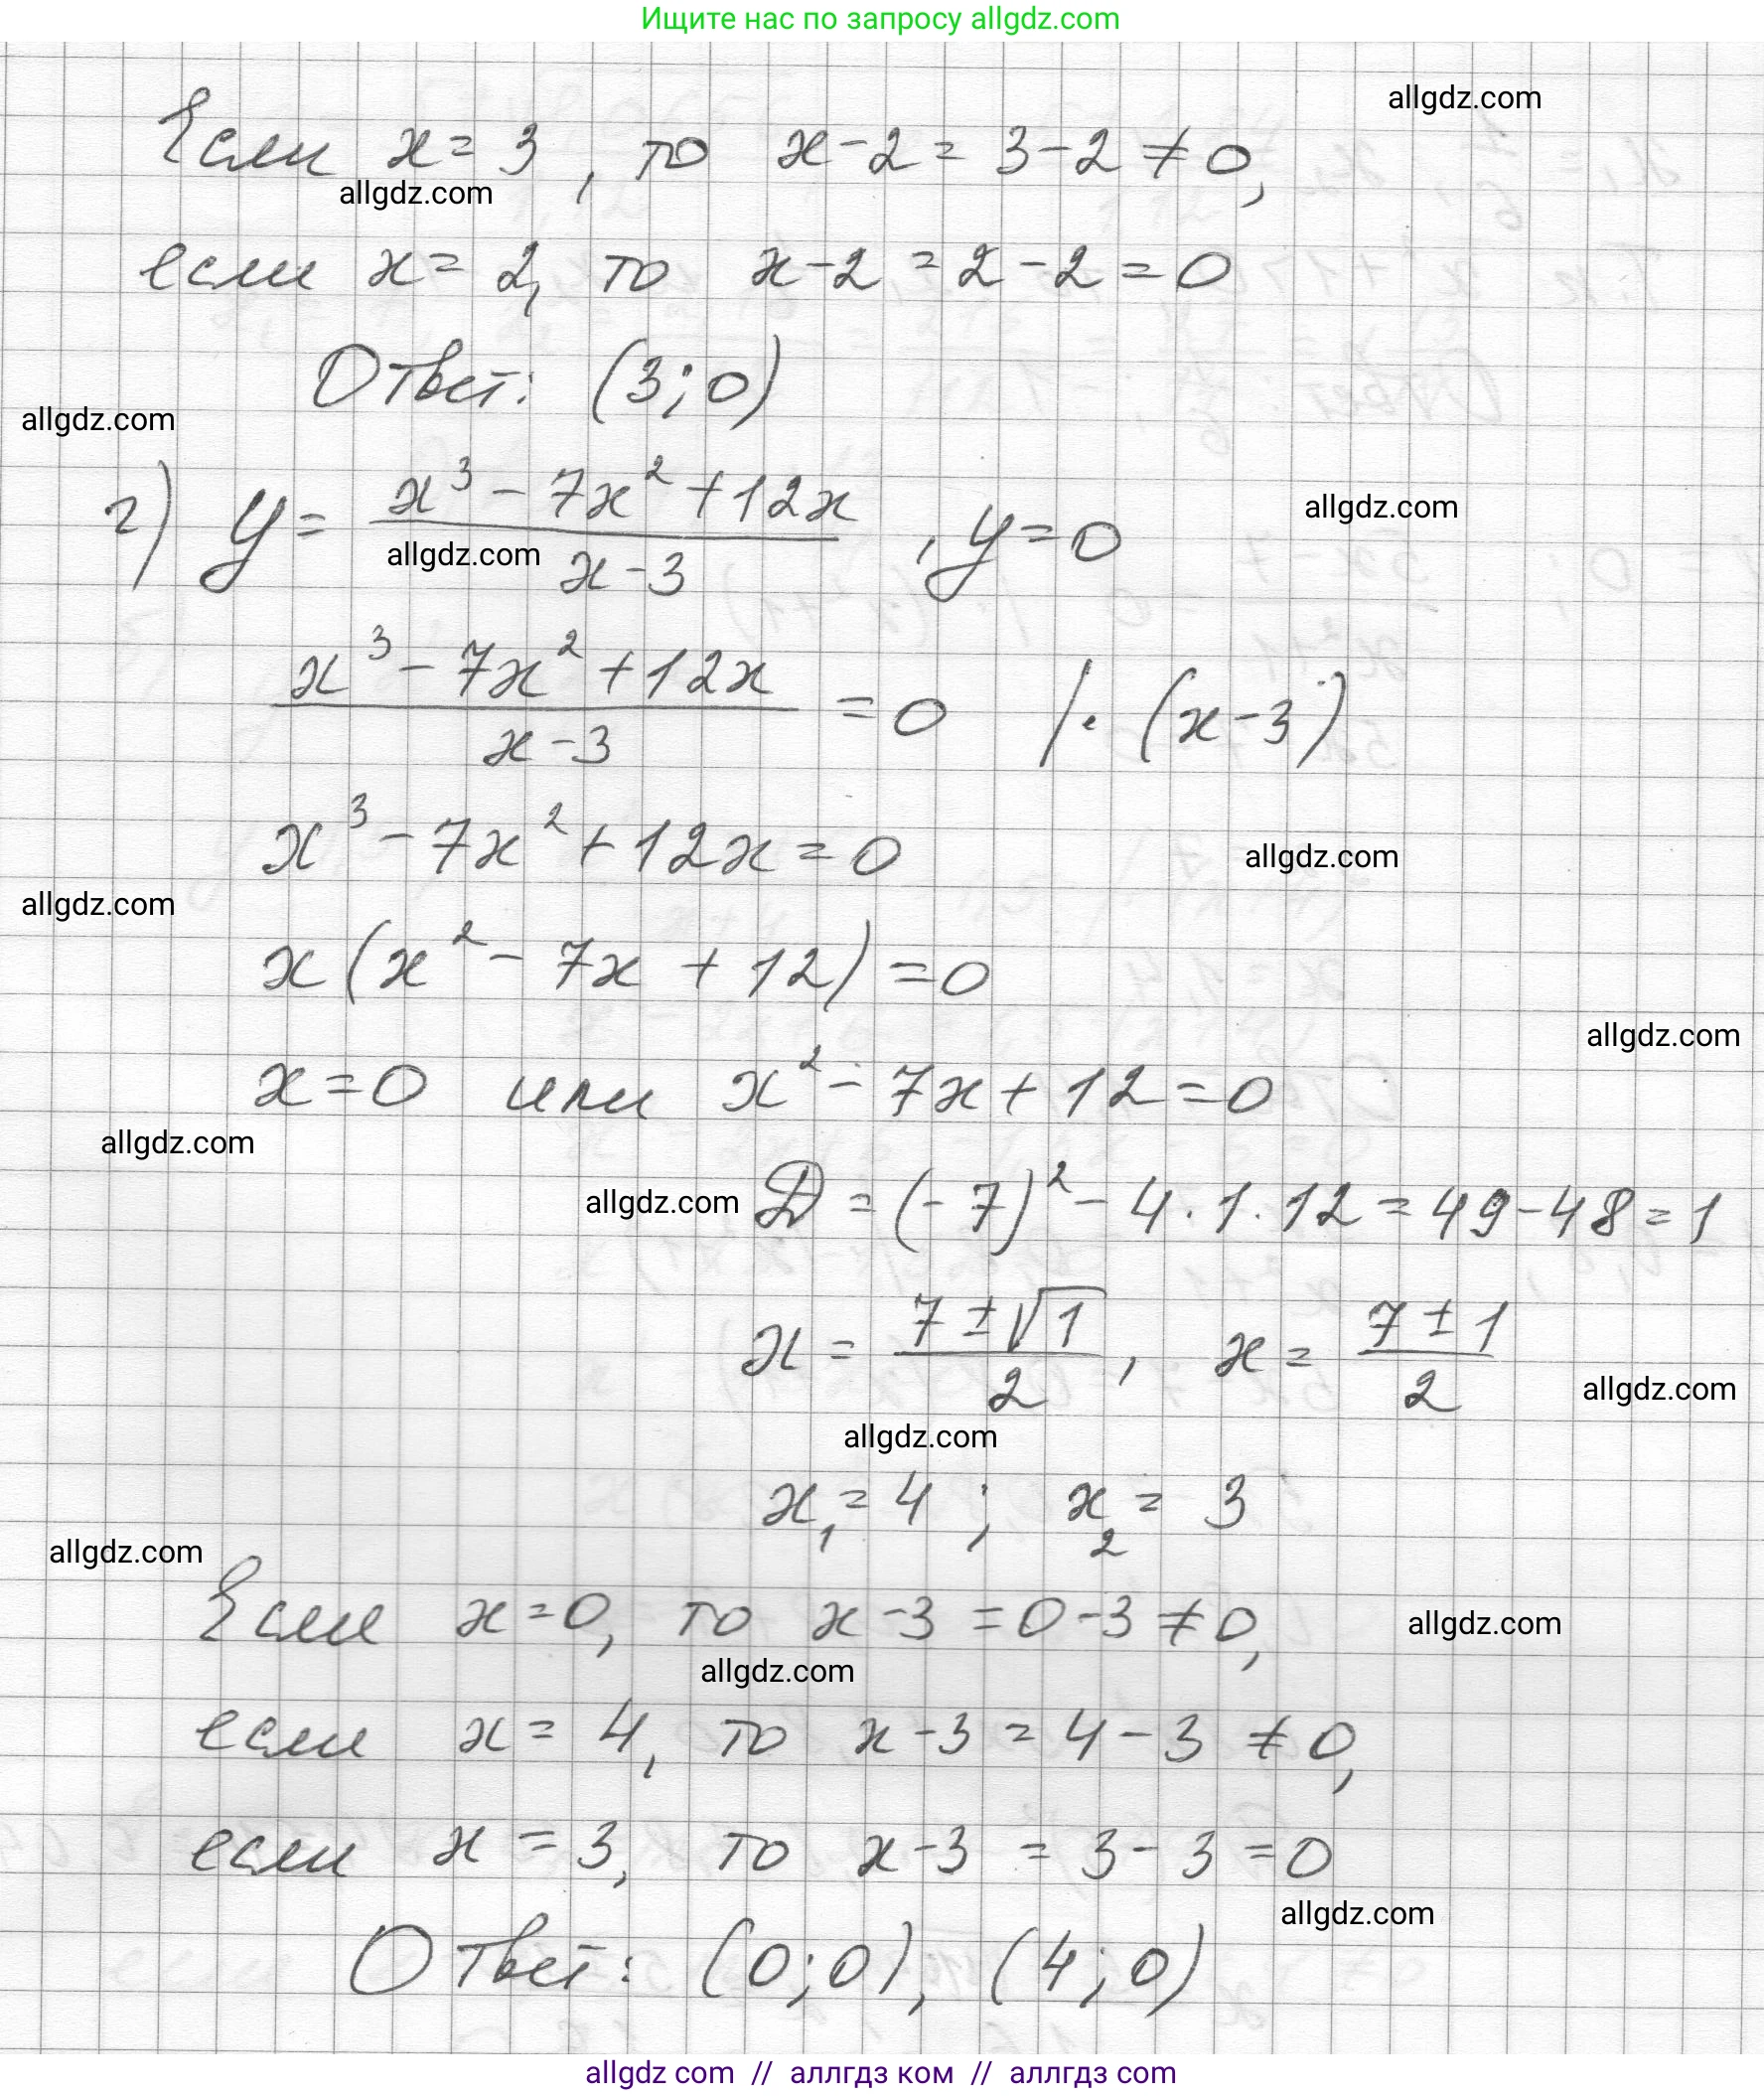 Ищите нас по запросу allgdz.com
allgdz.com
Если x = 3, то x - 2 = 3 - 2 ≠ 0,
allgdz.com
если x = 2, то x - 2 = 2 - 2 = 0
Ответ: (3; 0)
allgdz.com
г) y = (x³ - 7x² + 12x)/(x - 3), y = 0
allgdz.com
allgdz.com
(x³ - 7x² + 12x)/(x - 3) = 0 /· (x - 3)
x³ - 7x² + 12x = 0
allgdz.com
allgdz.com
x(x² - 7x + 12) = 0
allgdz.com
x = 0 или x² - 7x + 12 = 0
allgdz.com
allgdz.com
D = (-7)² - 4 · 1 · 12 = 49 - 48 = 1
x = (7 ± √1)/2, x = (7 ± 1)/2
allgdz.com
allgdz.com
x₁ = 4; x₂ = 3
allgdz.com
Если x = 0, то x - 3 = 0 - 3 ≠ 0,
allgdz.com
allgdz.com
если x = 4, то x - 3 = 4 - 3 ≠ 0,
если x = 3, то x - 3 = 3 - 3 = 0
allgdz.com
Ответ: (0; 0), (4; 0)
allgdz com // аллгдз ком // аллгдз com